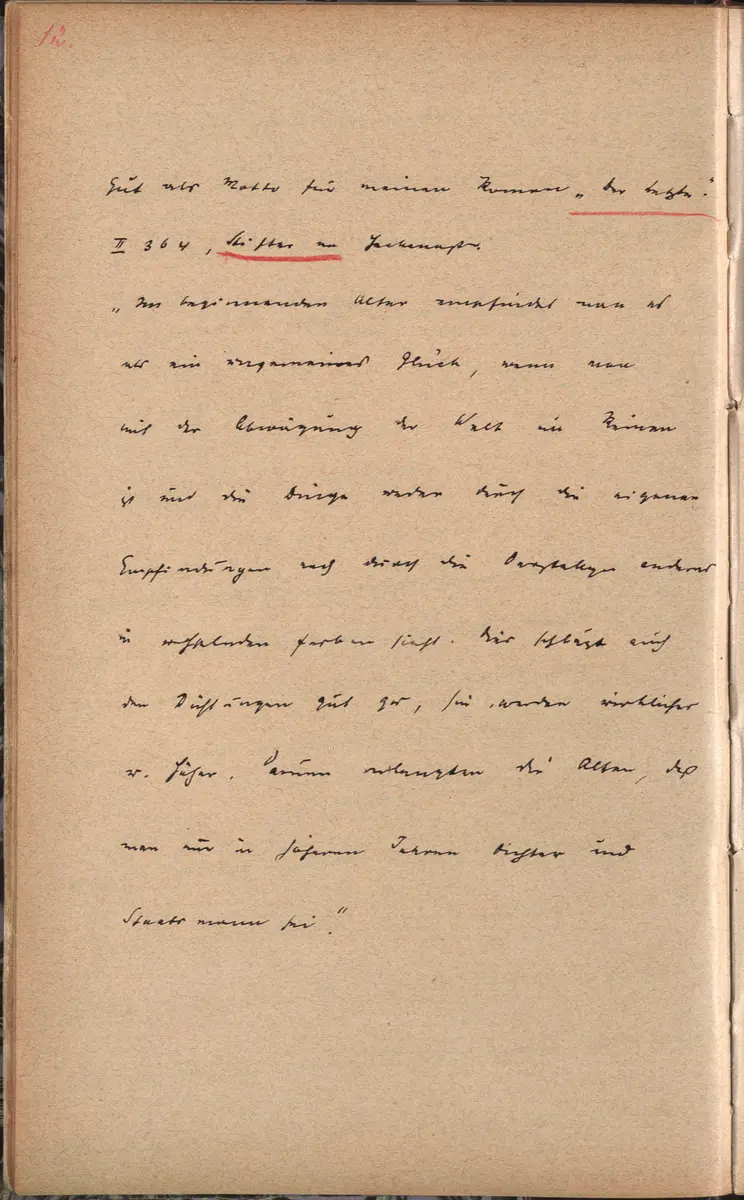 12.
Gut als Motto für meinen Roman „Der Letzte".
II 364, Stifter an Heckenast.
„Im beginnenden Alter empfindet man es
als ein ungemeines Glück, wenn man
mit der Abwägung der Welt im Reinen
ist und die Dinge weder durch die eigenen
Empfindungen noch durch die anderer
in wechselnden Farben sieht. Dies schlägt auch
den Dichtungen gut zu, sie werden wirklicher
u. höher. Darum verlangten die Alten, daß
man nur in höheren Jahren Dichter und
Staatsmann sei."